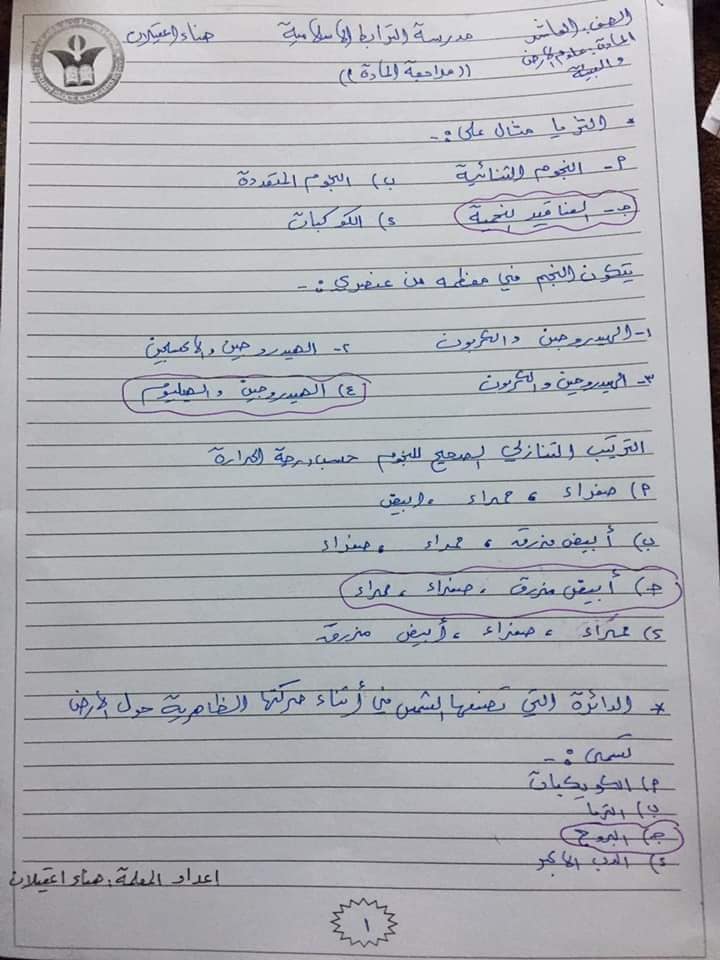 الصف: العاشر مدرسة الترابط الاسلامية هناء اعقيلان
المادة: علوم الارض والبيئة ((مراجعة المادة ))
* الثريا مثال على :-
أ- النجوم الثنائية ب) النجوم المتعددة
جـ- العناقيد النجمية د) الكوكبات
يتكون النجم في معظمه من عنصري :-
١- الهيدروجين والكربون ٢- الهيدروجين والاكسجين
٣- الهيدروجين والكربون ٤) الهيدروجين والهيليوم
الترتيب التنازلي الصحيح للنجوم حسب درجة الحرارة
أ) صفراء ، حمراء ، ابيض
ب) أبيض مزرق ، حمراء ، صفراء
جـ) أبيض مزرق ، صفراء ، حمراء
د) حمراء ، صفراء ، أبيض مزرق
* الدائرة التي تصنعها الشمس في أثناء حركتها الظاهرية حول الارض
تسمى :-
أ) الكويكبات
ب) الثريا
جـ) البروج
د) الدب الاكبر
إعداد المعلمة : هناء اعقيلان
١